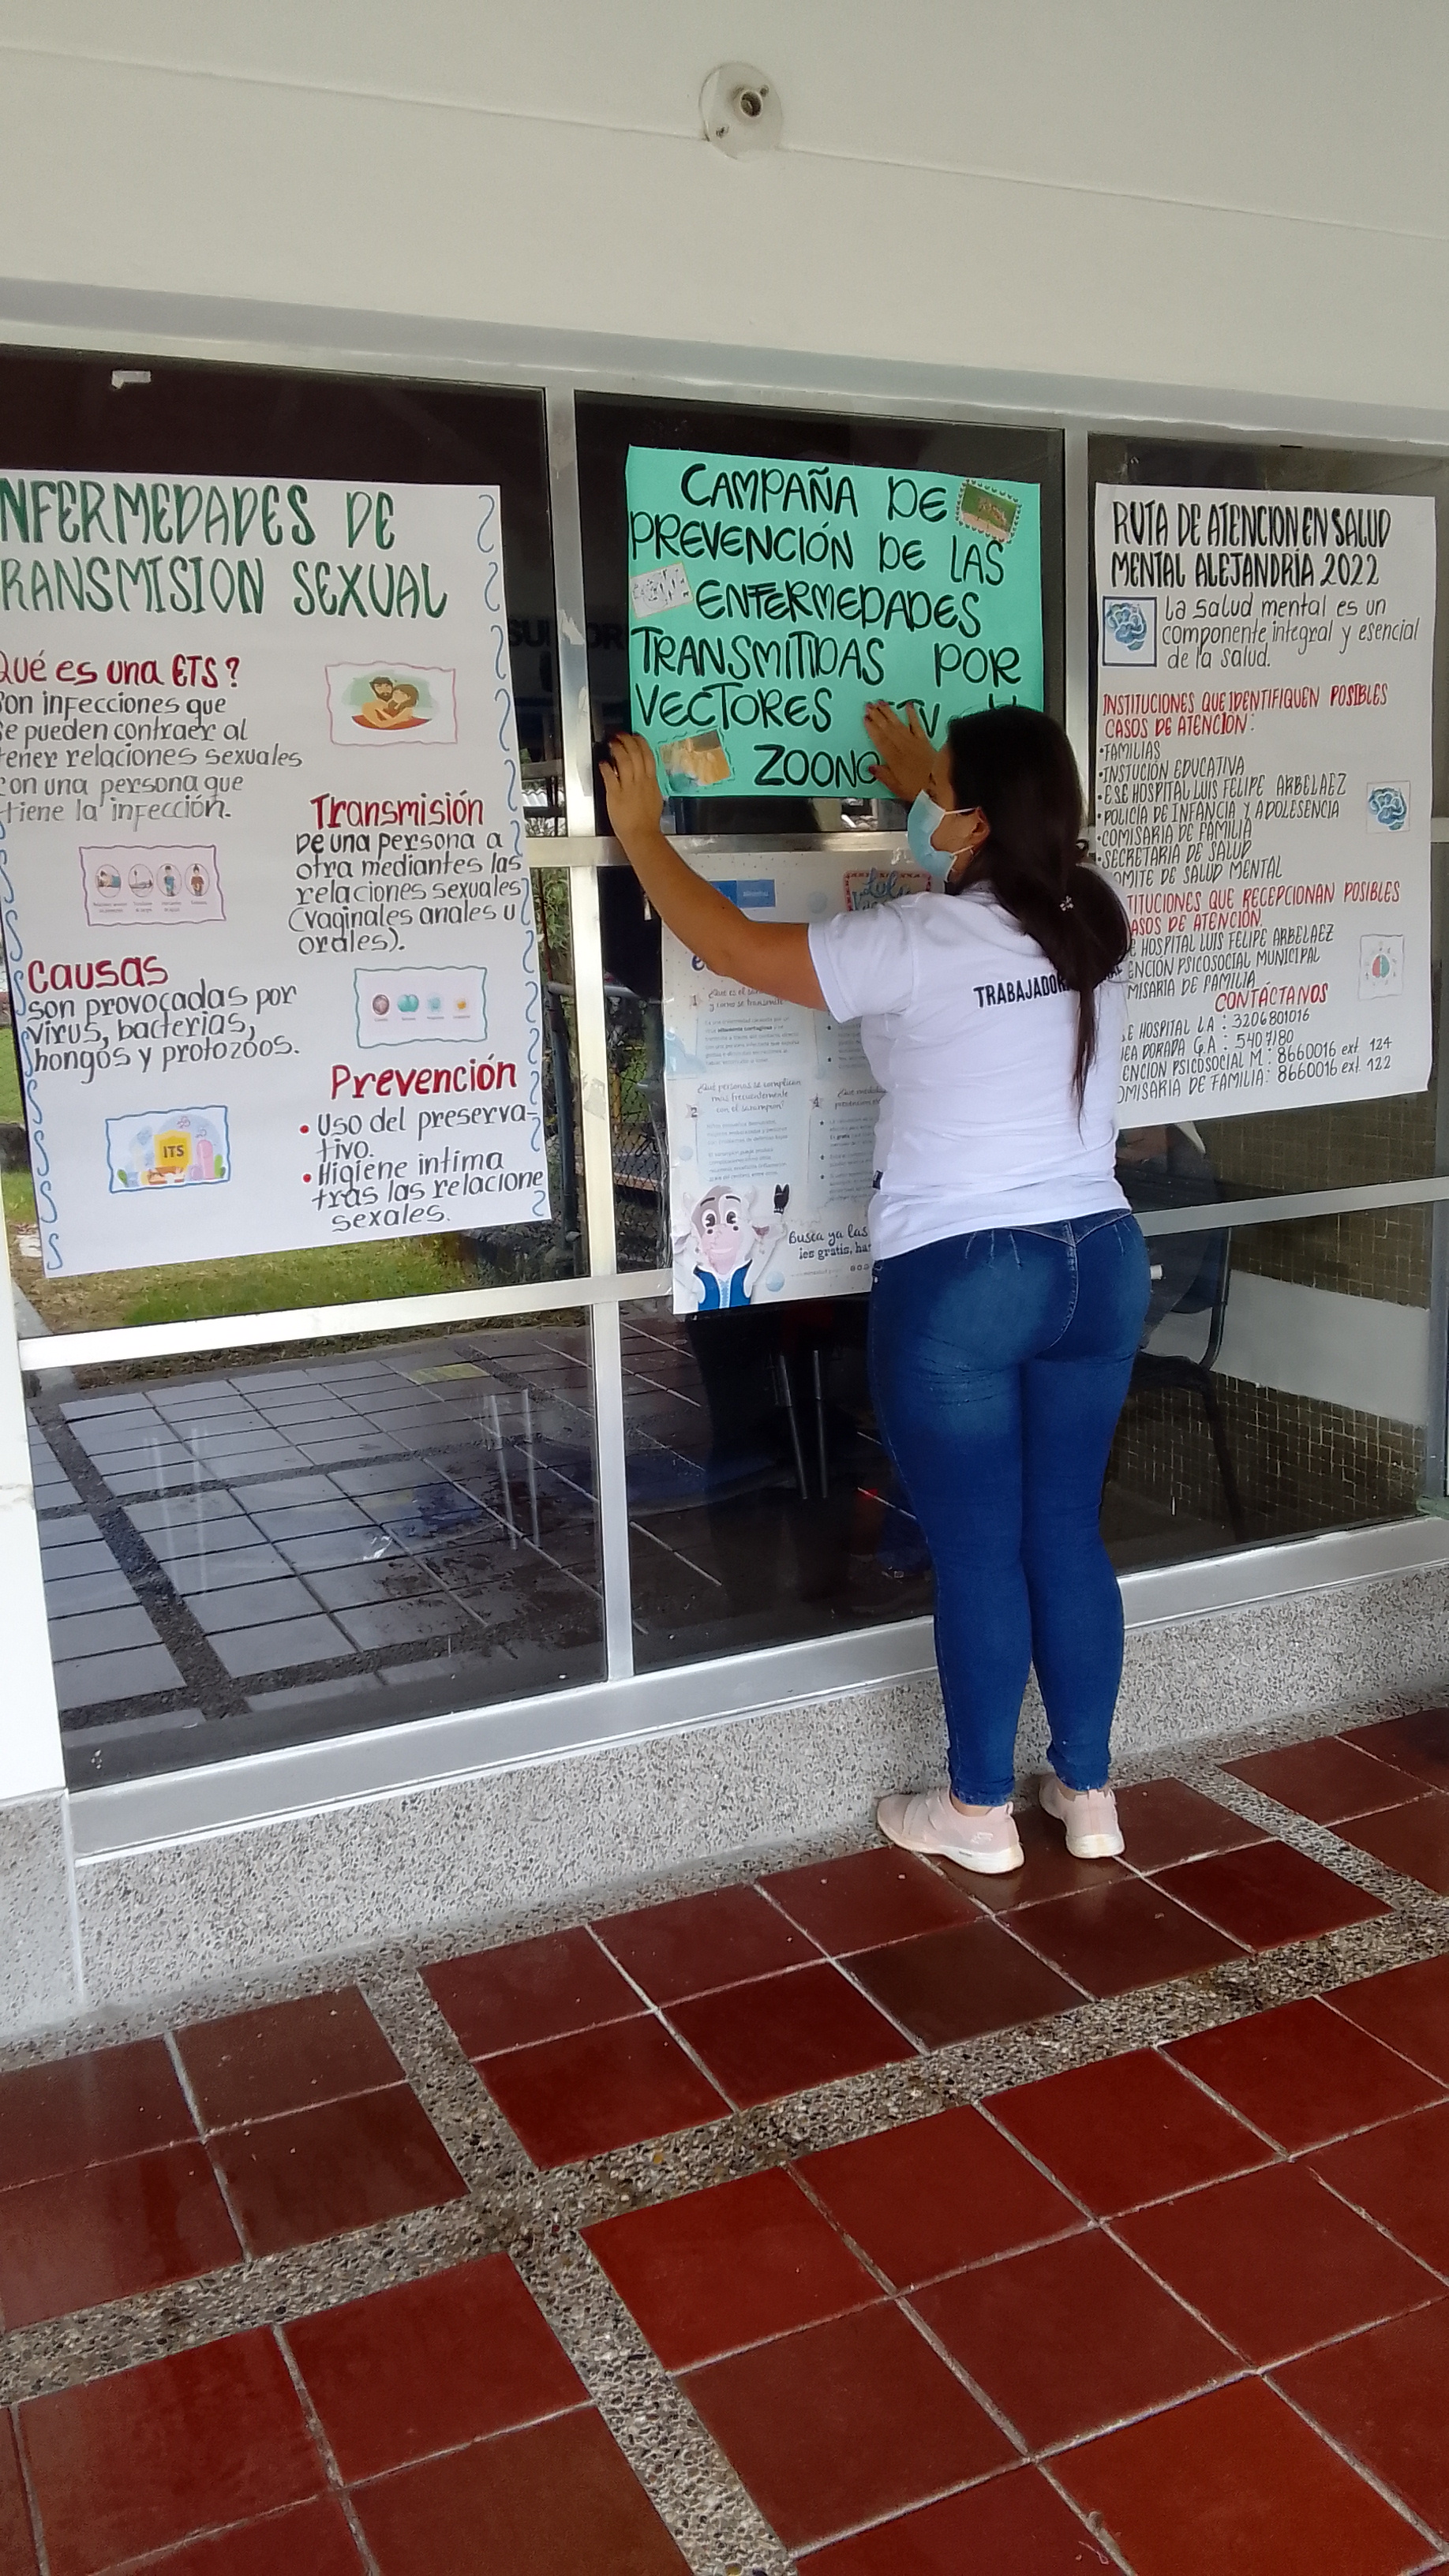 NFERMEDADES DE
RANSMISION SEXUAL
Qué es una ETS?
son infecciones que
se pueden contraer al
tener relaciones sexuales
con una persona que
tiene la infección.
Transmisión
De una persona a
otra mediantes las
relaciones sexuales
(vaginales anales u
orales).
Causas
son provocadas por
virus, bacterias,
hongos y protozoos.
ITS
Prevención
• Uso del preserva-
tivo.
• Higiene intima
tras las relacione
sexales.
CAMPAÑA DE
PREVENCIÓN DE LAS
ENFERMEDADES
TRANSMITIDAS POR
VECTORES
ZOONO
Lulu
1
y como se transmite
¿Qué personas se complican
más frecuentemente
con el sarampión?
2
Busca ya las
les gratis, ha
TRABAJADOR
RUTA DE ATENCION EN SALUD
MENTAL ALEJANDRÍA 2022
La salud mental es un
componente integral y esencial
de la salud.
INSTITUCIONES QUE IDENTIFIQUEN POSIBLES
CASOS DE ATENCIÓN:
•FAMILIAS
•INSTUCIÓN EDUCATIVA
•ESE HOSPITAL LUIS FELIPE ARBELAEZ
•POLICIA DE INFANCIA Y ADOLESENCIA
•COMISARIA DE FAMILIA
•SECRETARIA DE SALUD
OMITE DE SALUD MENTAL
TITUCIONES QUE RECEPCIONAN POSIBLES
ASOS DE ATENCIÓN.
E HOSPITAL LUIS FELIPE ARBELAEZ
ENCIÓN PSICOSOCIAL MUNICIPAL
MISARIA DE FAMILIA
CONTÁCTANOS
E HOSPITAL LA : 3206801016
NEA DORADA G.A : 5407180
ENCION PSICOSOCIAL M : 8660016 ext. 124
OMISARIA DE FAMILIA: 8660016 ext. 122